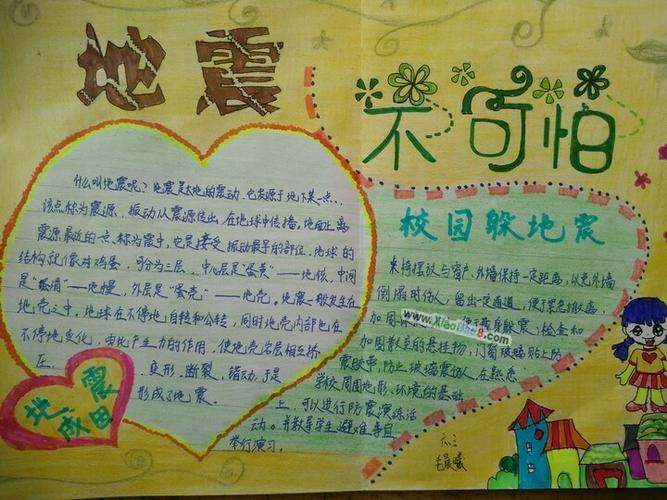 地震
不可怕
什么叫地震呢？地震是大地的震动，它发源于地下某一点，
该点称为震源，振动从震源传出，在地球中传播。地面上离
震源最近的一点称为震中，它是接受振动最早的部位，地球的
结构就像鸡蛋，可分为三层，中心层是“蛋黄”——地核，中间
是“蛋清”——地幔，外层是“蛋壳”——地壳。地震一般发生在
地壳之中，地球在不停地自转和公转，同时地壳内部也在
不停地变化，由此产生力的作用，使地壳岩层相互挤
压、变形、断裂、错动，于是
形成了地震。
地震
成因
校园躲地震
桌椅摆放与窗户、外墙保持一定距离，以免外墙
倒塌时伤人，留出一定通道，便于紧急撤离
加固课桌 便于藏身躲震，检查和
加固教室的悬挂物，门窗玻璃贴上防
震胶带，防止玻璃震伤人，在熟悉
学校周围地形、环境的基础
上，可以进行防震演练活
动。并教导学生避难
举行演习。
六三
毛晨曦
www.XiaoBao8.com